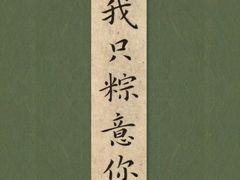 我只粽意你